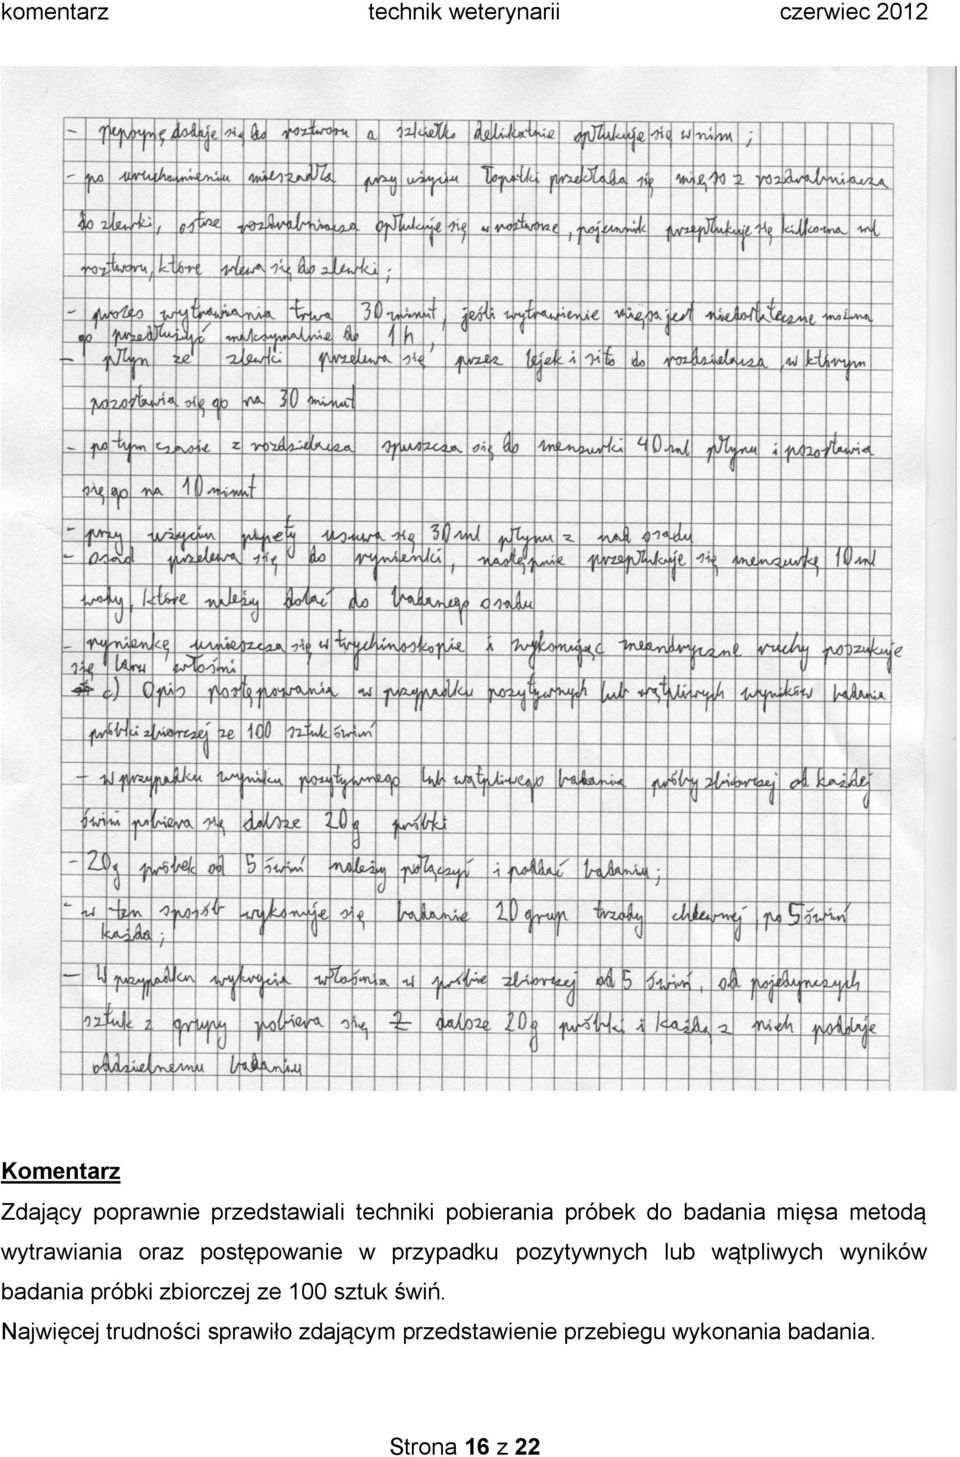 komentarz technik weterynarii czerwiec 2012
- pepsynę dodaje się do roztworu a szkiełko delikatnie opłukuje się w nim ;
- po uruchomieniu mieszadła przy użyciu łopatki przekłada się mięso z rozdrabniacza
do zlewki, ostrze rozdrabniacza opłukuje się w roztworze, pojemnik przepłukuje się kilkoma ml
roztworu, które wlewa się do zlewki ;
- proces wytrawiania trwa 30 minut, jeśli wytrawienie mięsa jest niedostateczne można
go przedłużyć maksymalnie do 1h,
- płyn ze zlewki przelewa się przez lejek i sito do rozdzielacza, w którym
pozostawia się go na 30 minut
- po tym czasie z rozdzielacza spuszcza się do menzurki 40 ml płynu i pozostawia
się go na 10 minut
- przy użyciu pipety usuwa się 30 ml płynu z nad osadu
- osad przelewa się do rynienki, następnie przepłukuje się menzurkę 10 ml
wody, które należy dolać do badanego osadu
- rynienkę umieszcza się w trychinoskopie i wykonując meandryczne ruchy poszukuje
się larw włośni
c) Opis postępowania w przypadku pozytywnych lub wątpliwych wyników badania
próbki zbiorczej ze 100 sztuk świń
- w przypadku wyniku pozytywnego lub wątpliwego badania próby zbiorczej od każdej
świni pobiera się dalsze 20g próbki
- 20g próbek od 5 świń należy połączyć i poddać badaniu ;
- w ten sposób wykonuje się badanie 20 grup trzody chlewnej, po 5 świń
każda ;
- W przypadku wykrycia włośnia w próbie zbiorczej od 5 świń, od pojedynczych
sztuk z grupy pobiera się dalsze 20g próbki i każdą z nich poddaje
oddzielnemu badaniu
Komentarz
Zdający poprawnie przedstawiali techniki pobierania próbek do badania mięsa metodą
wytrawiania oraz postępowanie w przypadku pozytywnych lub wątpliwych wyników
badania próbki zbiorczej ze 100 sztuk świń.
Najwięcej trudności sprawiło zdającym przedstawienie przebiegu wykonania badania.
Strona 16 z 22